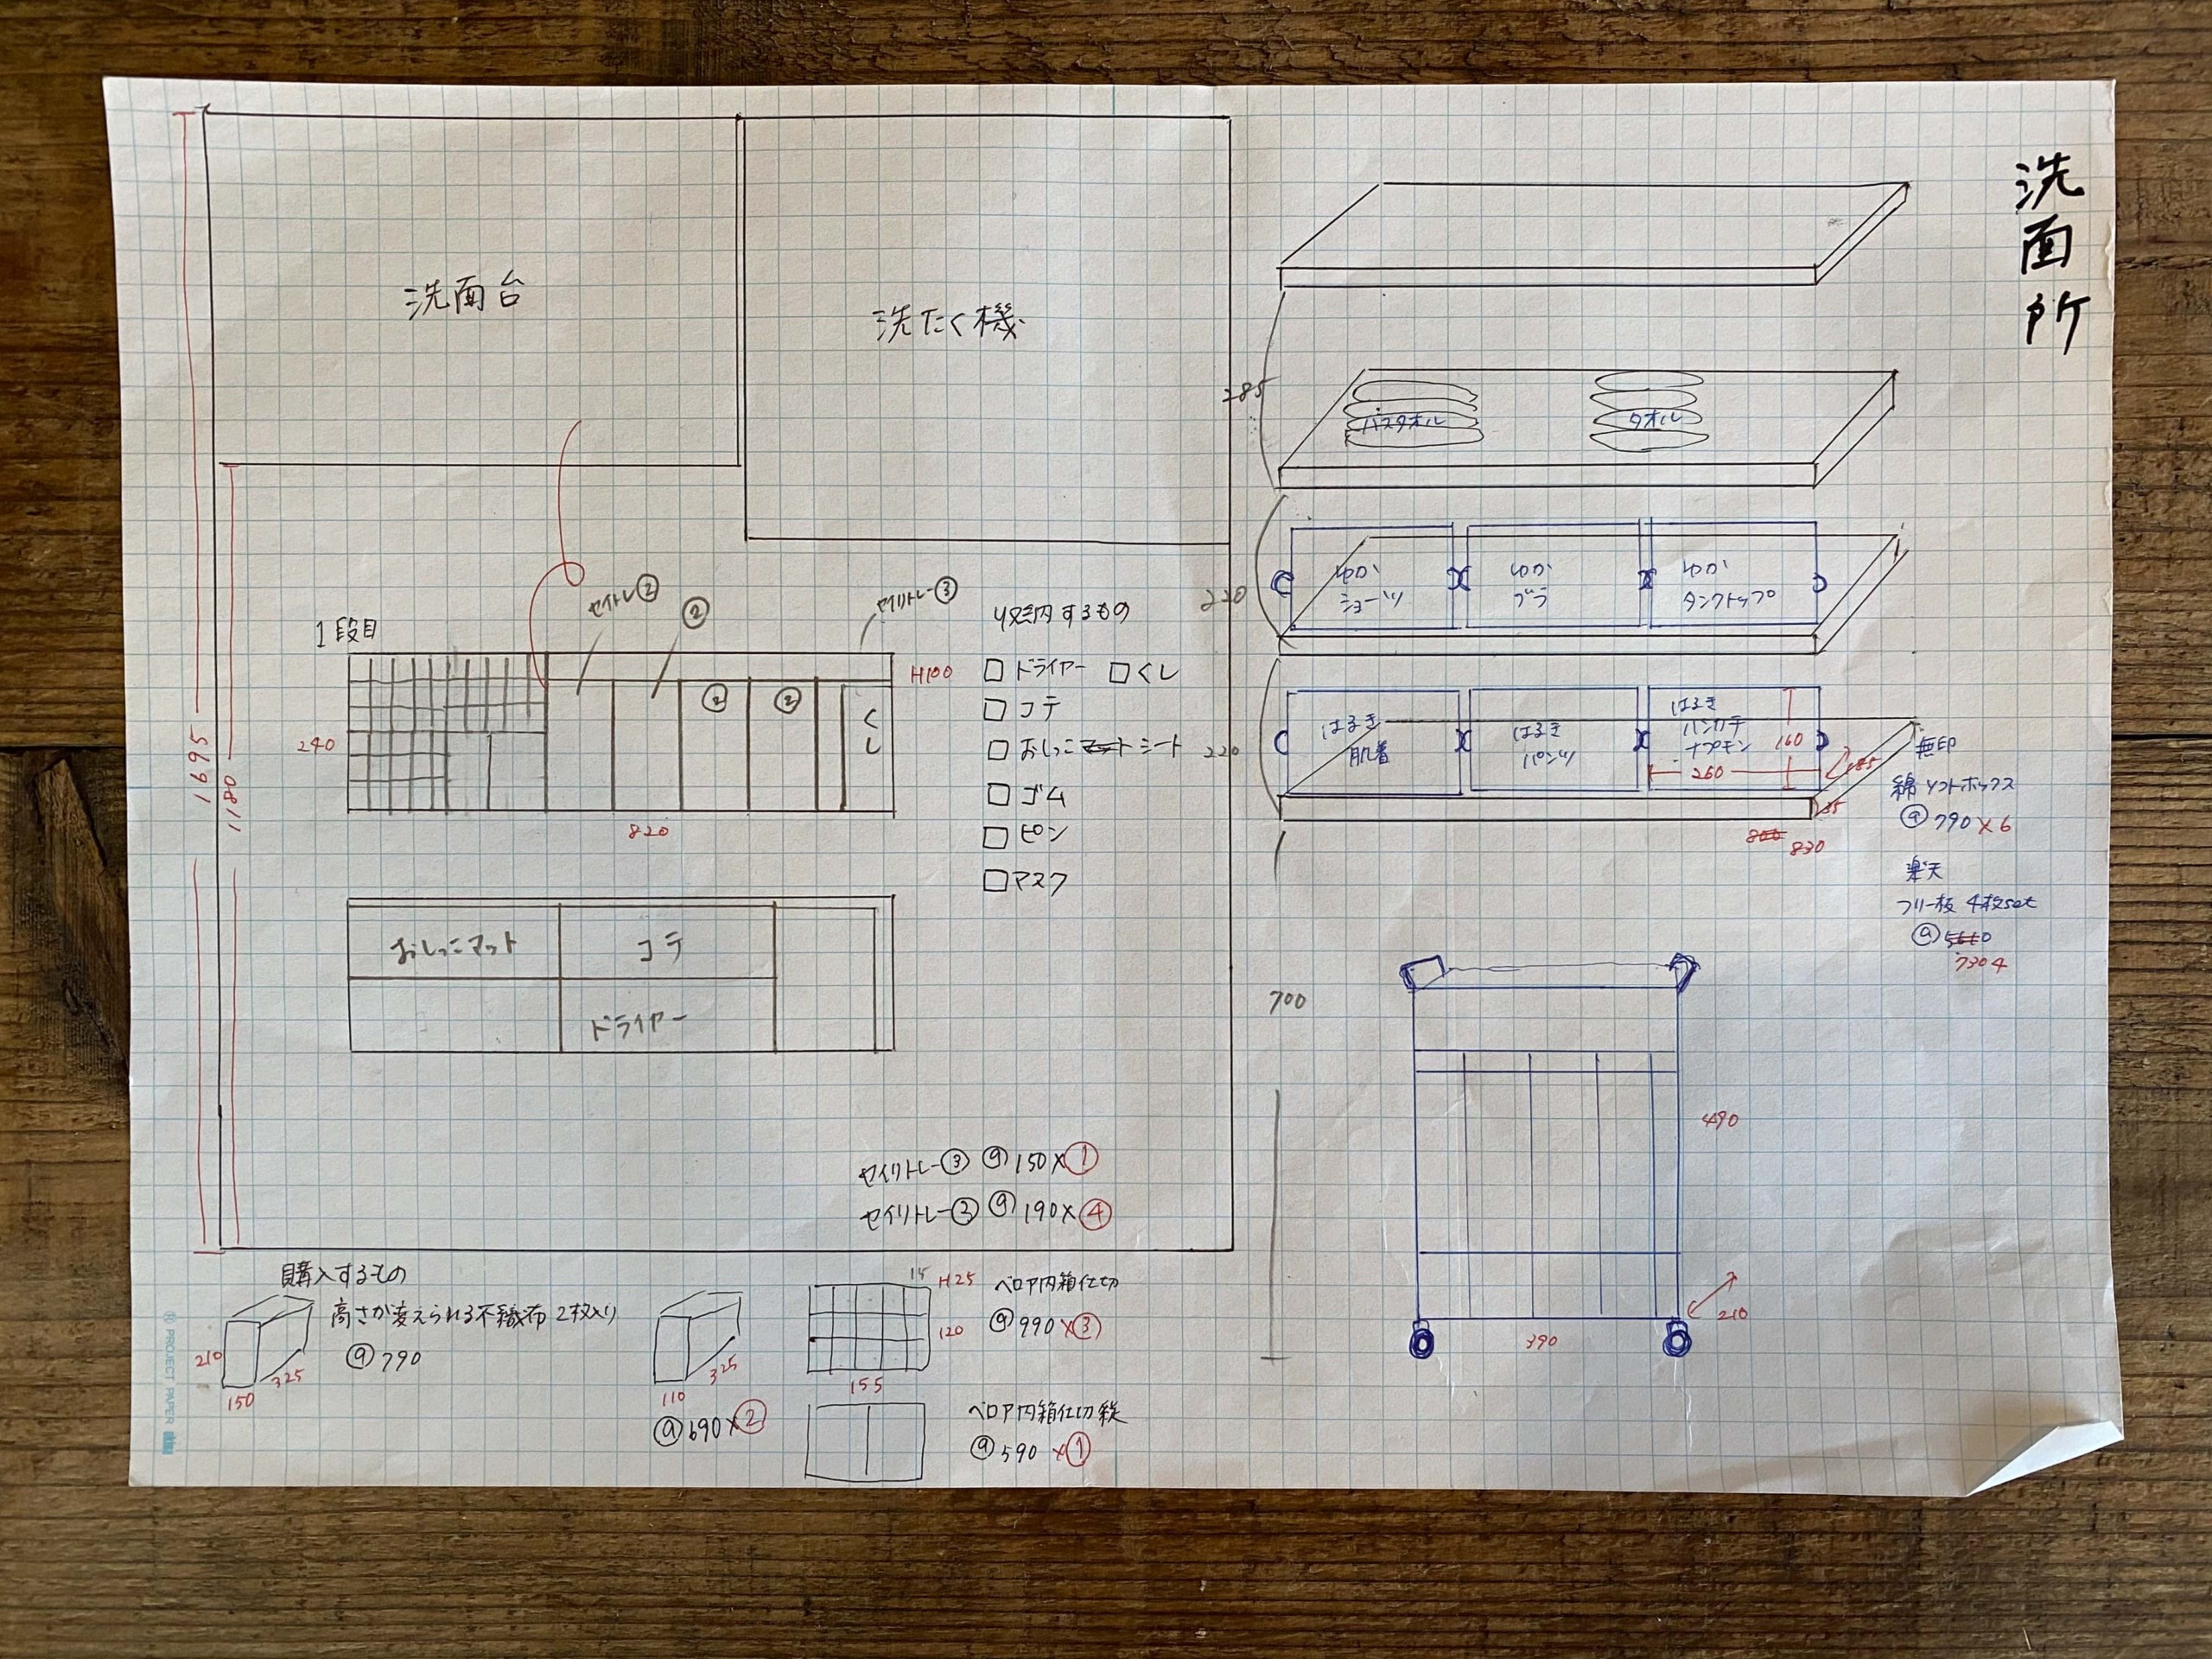 洗面所
洗面台
洗たく機
1695
1180
1段目
セイトレ②
②
セイリトレー③
②
②
くし
H100
240
820
収納するもの
□ ドライヤー □ くし
□ コテ
□ おしっこマット シート
□ ゴム
□ ピン
□ マスク
おしっこマット
コテ
ドライヤー
セイリトレー③ @150×①
セイリトレー③ @190×④
購入するもの
高さが変えられる不織布 2枚入り
@790
210
150
325
110
325
@690×②
15
H25
120
155
ベロア内箱仕切
@990×③
ベロア内箱仕切 縦
@590 ×①
285
バスタオル
タオル
220
ゆか
ショーツ
ゆか
ブラ
ゆか
タンクトップ
220
はるき
肌着
はるき
パンツ
はるき
ハンカチ
ナプキン
160
260
185
35
800
830
無印
綿 ソフトボックス
@790×6
楽天
フリー板 4枚set
@5660
7304
700
490
210
390
PROJECT PAPER